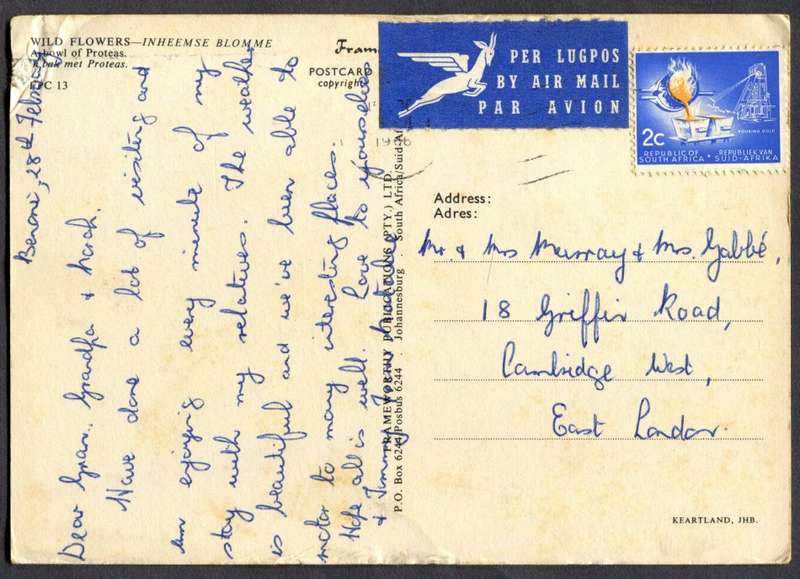 WILD FLOWERS—INHEEMSE BLOMME
A bowl of Proteas.
'n Bak met Proteas.
FPC 13
Fram
POSTCARD
copyright
PER LUGPOS
BY AIR MAIL
PAR AVION
2c
POURING GOLD
REPUBLIC OF SOUTH AFRICA • REPUBLIEK VAN SUID-AFRIKA
Benoni, 28th
Dear Gran, Grandpa &
Have done a lot of visiting and
am enjoying every minute of my
stay with my relatives. The weather
is beautiful and we've been able to
motor to many interesting places.
Hope all is well. Love to yourselves
& Jimmy from
FRAMEWORTHY PUBLICATIONS (PTY.) LTD.
P.O. Box 6244/Posbus 6244 . Johannesburg . South Africa/Suid-Af
Address:
Adres:
Mr. & Mrs Murray & Mrs. Gabbé,
18 Griffin Road,
Cambridge West,
East London.
KEARTLAND, JHB.